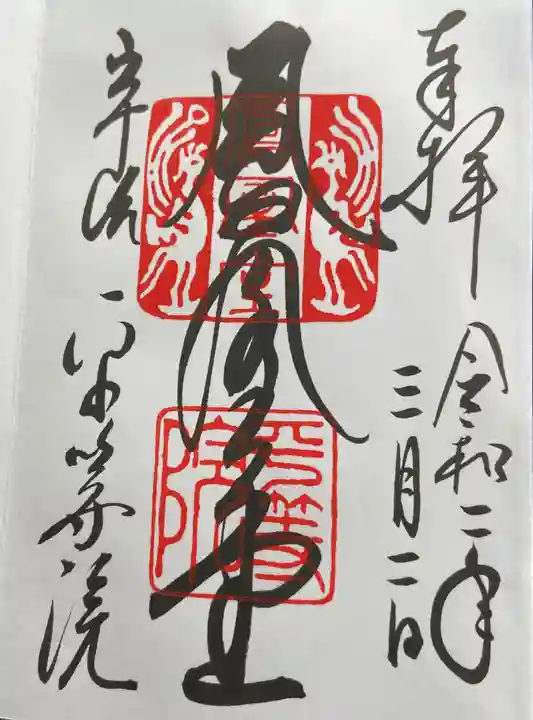 奉拝
令和二年
三月二日
鳳凰堂
平等院
宇治
平等院